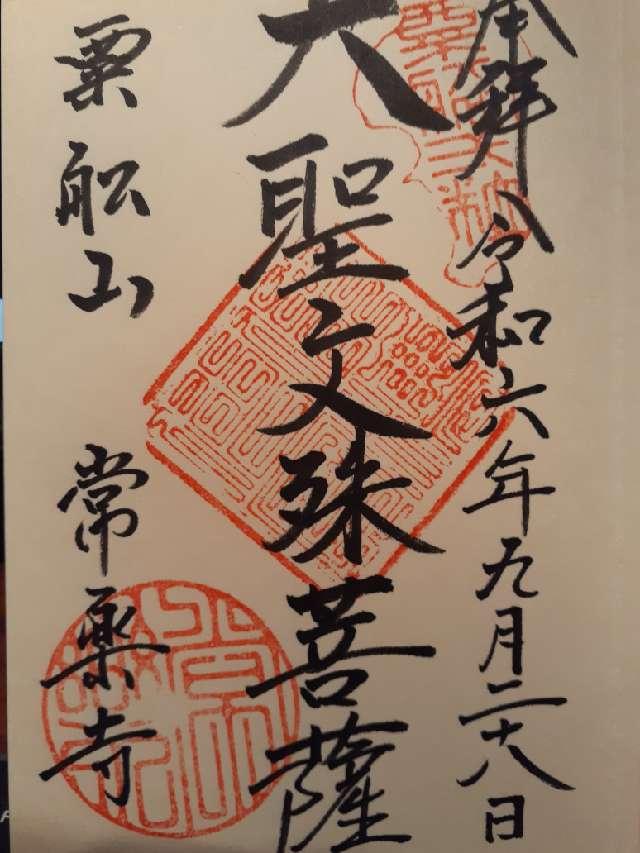 奉拜 令和六年九月二十八日
大聖文殊菩薩
粟船山 常楽寺